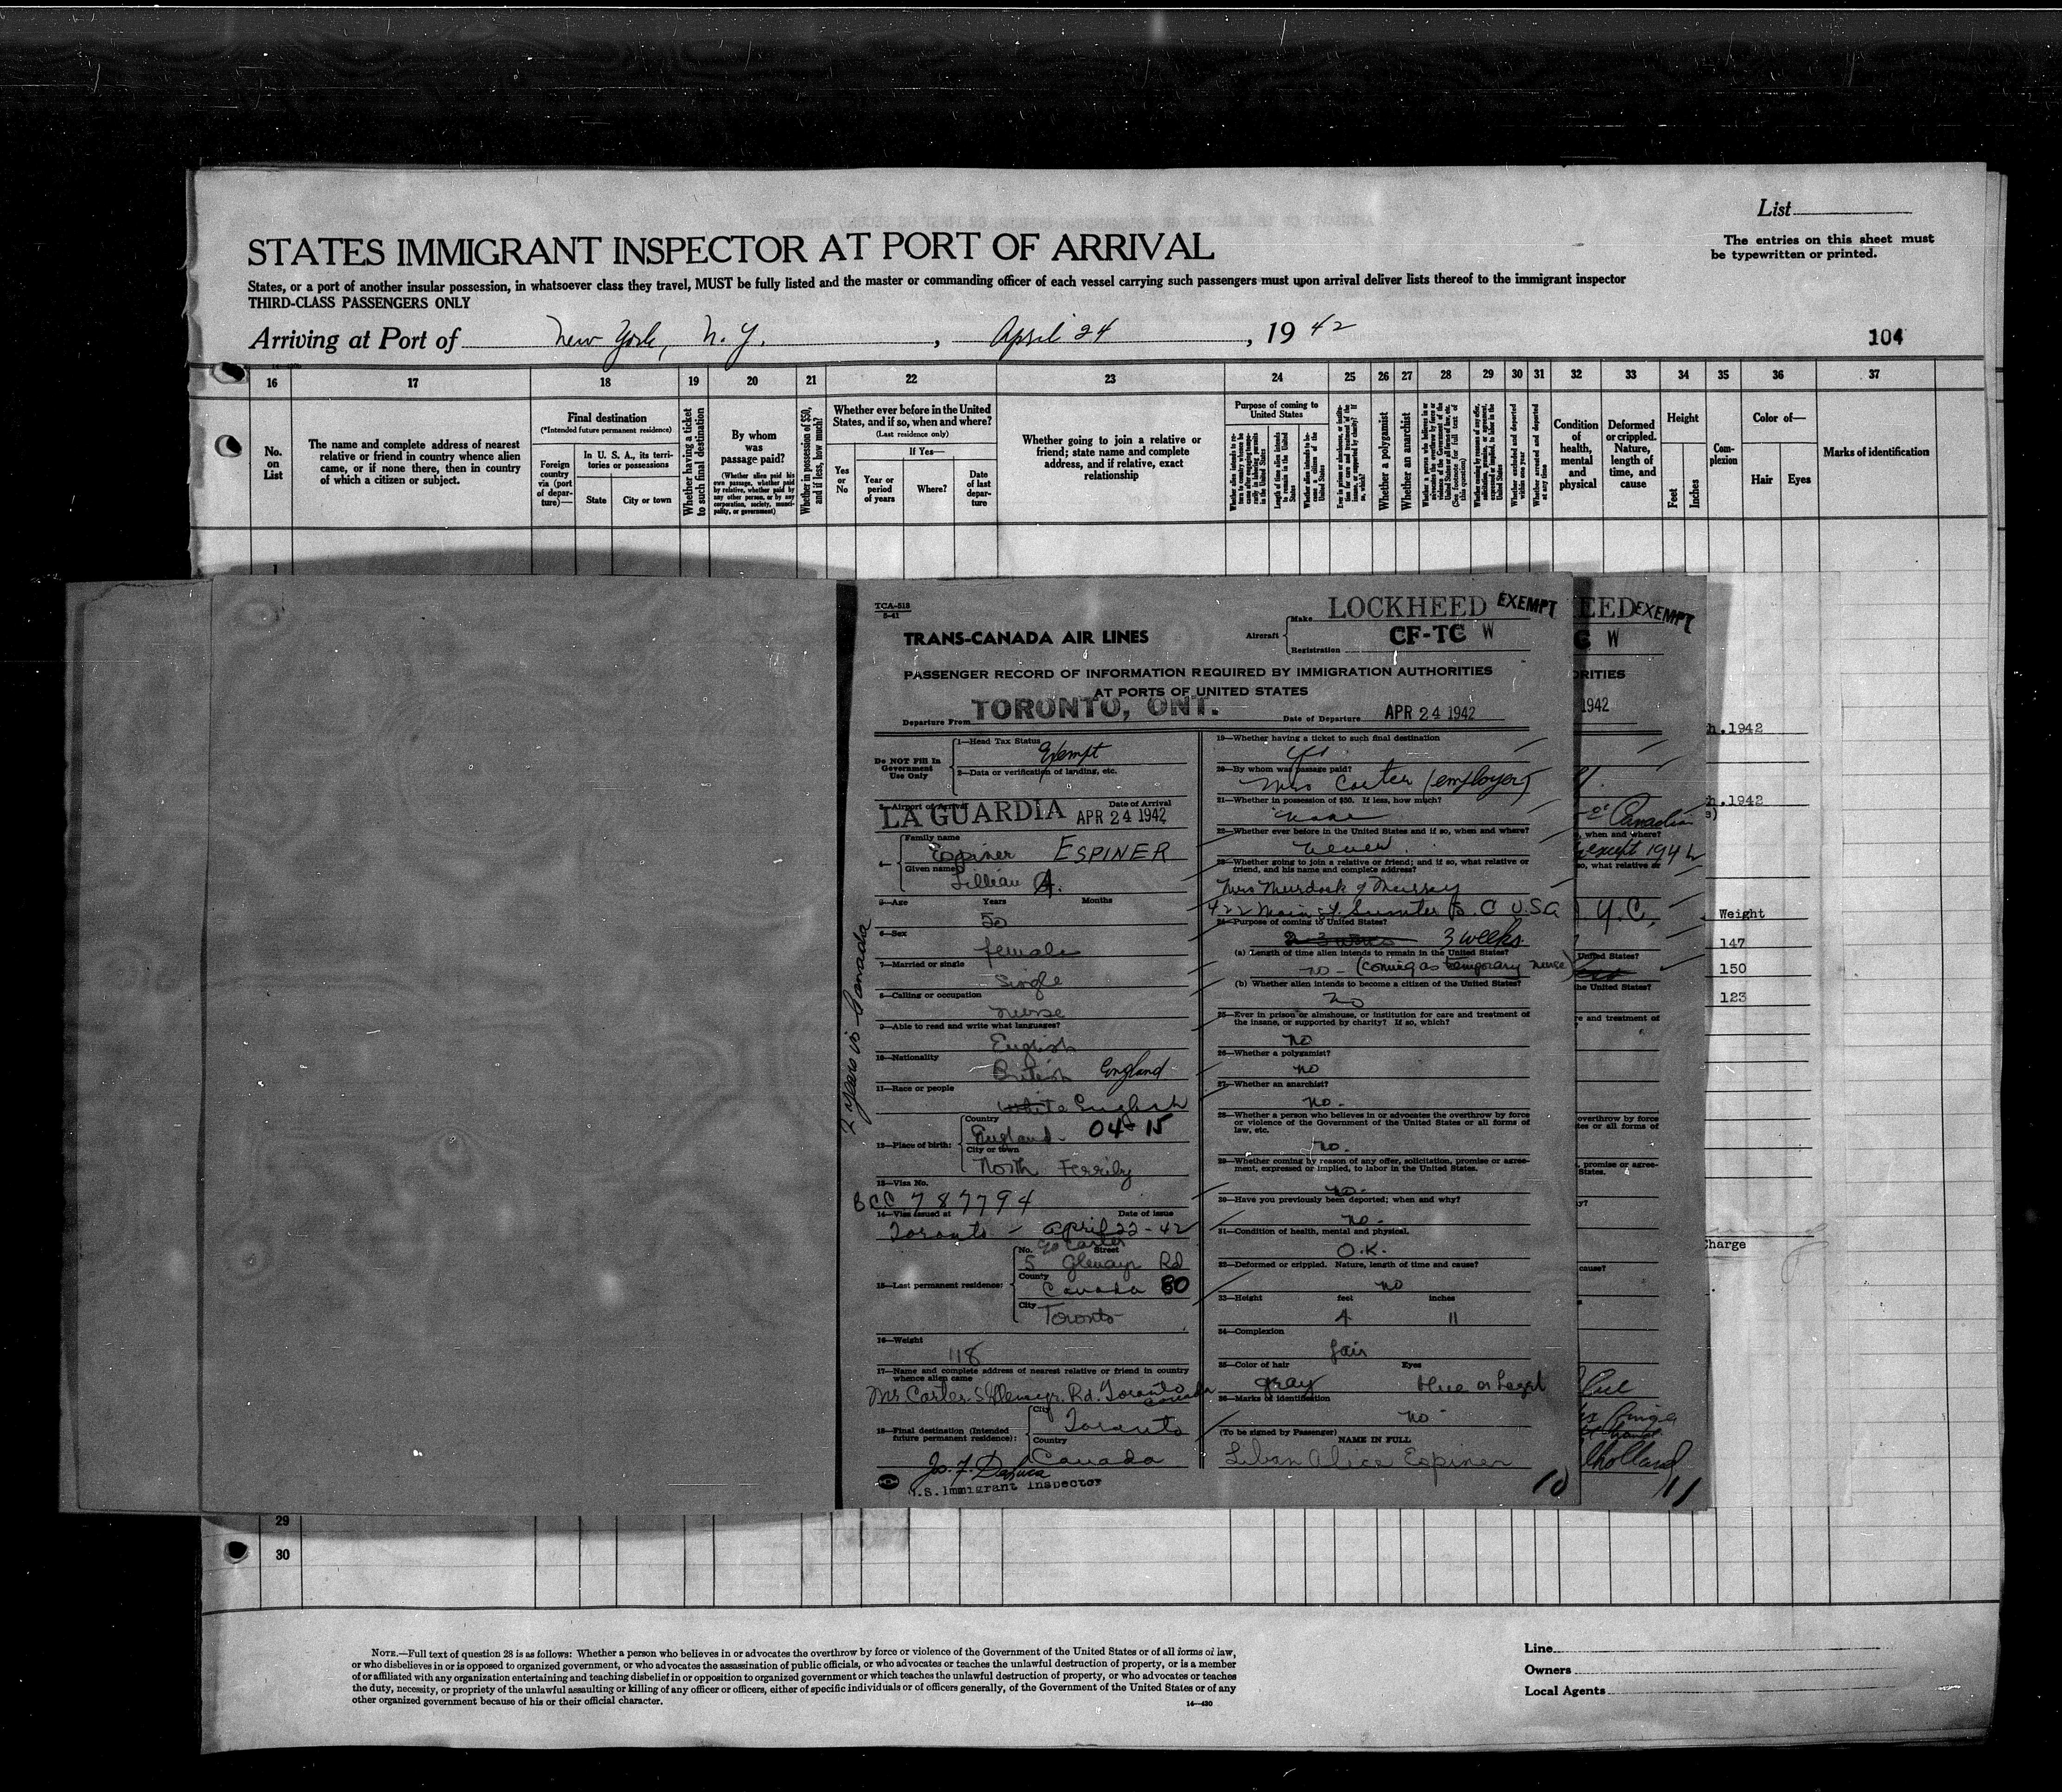 List
The entries on this sheet must
be typewritten or printed.
STATES IMMIGRANT INSPECTOR AT PORT OF ARRIVAL
States, or a port of another insular possession, in whatsoever class they travel, MUST be fully listed and the master or commanding officer of each vessel carrying such passengers must upon arrival deliver lists thereof to the immigrant inspector
THIRD-CLASS PASSENGERS ONLY
Arriving at Port of New York, N.Y. , April 24 , 19 42
104
16 17 18 19 20 21 22 23 24 25 26 27 28 29 30 31 32 33 34 35 36 37
No. on List
The name and complete address of nearest
relative or friend in country whence alien
came, or if none there, then in country
of which a citizen or subject.
Final destination
(*Intended future permanent residence)
Foreign country via (port of departure)—
In U. S. A., its territories or possessions
State
City or town
Whether having a ticket to such final destination
By whom was passage paid?
(Whether alien paid his own passage, whether paid by relative, whether paid by any other person, or by any corporation, society, municipality, or government)
Whether in possession of $50, and if less, how much?
Whether ever before in the United
States, and if so, when and where?
(Last residence only)
If Yes—
Yes or No
Year or period of years
Where?
Date of last departure
Whether going to join a relative or
friend; state name and complete
address, and if relative, exact
relationship
Purpose of coming to United States
Whether a polygamist
Whether an anarchist
Whether excluded and deported within one year
Whether arrested and deported at any time
Condition of health, mental and physical
Deformed or crippled. Nature, length of time, and cause
Height
Feet
Inches
Complexion
Color of—
Hair
Eyes
Marks of identification
1
TCA-518
5-41
TRANS-CANADA AIR LINES
Aircraft
Make LOCKHEED EXEMPT
Registration CF-TC W
PASSENGER RECORD OF INFORMATION REQUIRED BY IMMIGRATION AUTHORITIES
AT PORTS OF UNITED STATES
Departure From TORONTO, ONT.
Date of Departure APR 24 1942
Do NOT Fill In
Government
Use Only
1—Head Tax Status Exempt
2—Data or verification of landing, etc.
3—Airport of Arrival LA GUARDIA
Date of Arrival APR 24 1942
4—
Family name Espiner ESPINER
Given name Lillian A.
5—Age Years 50 Months
6—Sex female
7—Married or single Single
8—Calling or occupation nurse
9—Able to read and write what languages? English
10—Nationality British England
11—Race or people white English
12—Place of birth:
Country England 04 15
City or town North Ferriby
13—Visa No.
BCC 787794
14—Visa issued at Toronto - Date of Issue April 22-42
15—Last permanent residence:
c/o Carter
No. 5 Street Glenayr Rd
County Canada 80
City Toronto
16—Weight 118
17—Name and complete address of nearest relative or friend in country
whence alien came
Mrs. Carter. 5 Glenayr. Rd. Toronto Canada
18—Final destination (Intended
future permanent residence):
City Toronto
Country Canada
U.S. Immigrant Inspector
2 years in Canada
19—Whether having a ticket to such final destination
yes
20—By whom was passage paid?
Mrs Carter (employer)
21—Whether in possession of $50. If less, how much?
none
22—Whether ever before in the United States and if so, when and where?
never.
23—Whether going to join a relative or friend; and if so, what relative or
friend, and his name and complete address?
Mrs Murdock J Murray
422 Main St. Sumter S. C U.S.A
24—Purpose of coming to United States?
3 weeks
(a) Length of time alien intends to remain in the United States?
no - (coming as temporary nurse)
(b) Whether alien intends to become a citizen of the United States?
no
25—Ever in prison or almshouse, or institution for care and treatment of
the insane, or supported by charity? If so, which?
no
26—Whether a polygamist?
no
27—Whether an anarchist?
no.
28—Whether a person who believes in or advocates the overthrow by force
or violence of the Government of the United States or all forms of
law, etc.
no.
29—Whether coming by reason of any offer, solicitation, promise or agree-
ment, expressed or implied, to labor in the United States.
no.
30—Have you previously been deported; when and why?
no.
31—Condition of health, mental and physical.
O.K.
32—Deformed or crippled. Nature, length of time and cause?
no
33—Height feet inches
4 11
34—Complexion
fair
35—Color of hair Eyes
gray blue or hazel
36—Marks of identification
no
(To be signed by Passenger)
NAME IN FULL
Lilian Alice Espiner
10
EED EXEMPT
C W
ORITIES
1942
Canadian
, when and where?
except 1942
so, what relative or
Y.C.
United States?
the United States?
re and treatment of
overthrow by force
tes or all forms of
, promise or agree-
States.
y?
cause?
lholland
11
h.1942
h.1942
s)
Weight
147
150
123
Charge
29
30
NOTE.—Full text of question 28 is as follows: Whether a person who believes in or advocates the overthrow by force or violence of the Government of the United States or of all forms of law,
or who disbelieves in or is opposed to organized government, or who advocates the assassination of public officials, or who advocates or teaches the unlawful destruction of property, or is a member
of or affiliated with any organization entertaining and teaching disbelief in or opposition to organized government or which teaches the unlawful destruction of property, or who advocates or teaches
the duty, necessity, or propriety of the unlawful assaulting or killing of any officer or officers, either of specific individuals or of officers generally, of the Government of the United States or of any
other organized government because of his or their official character.
14—430
Line
Owners
Local Agents